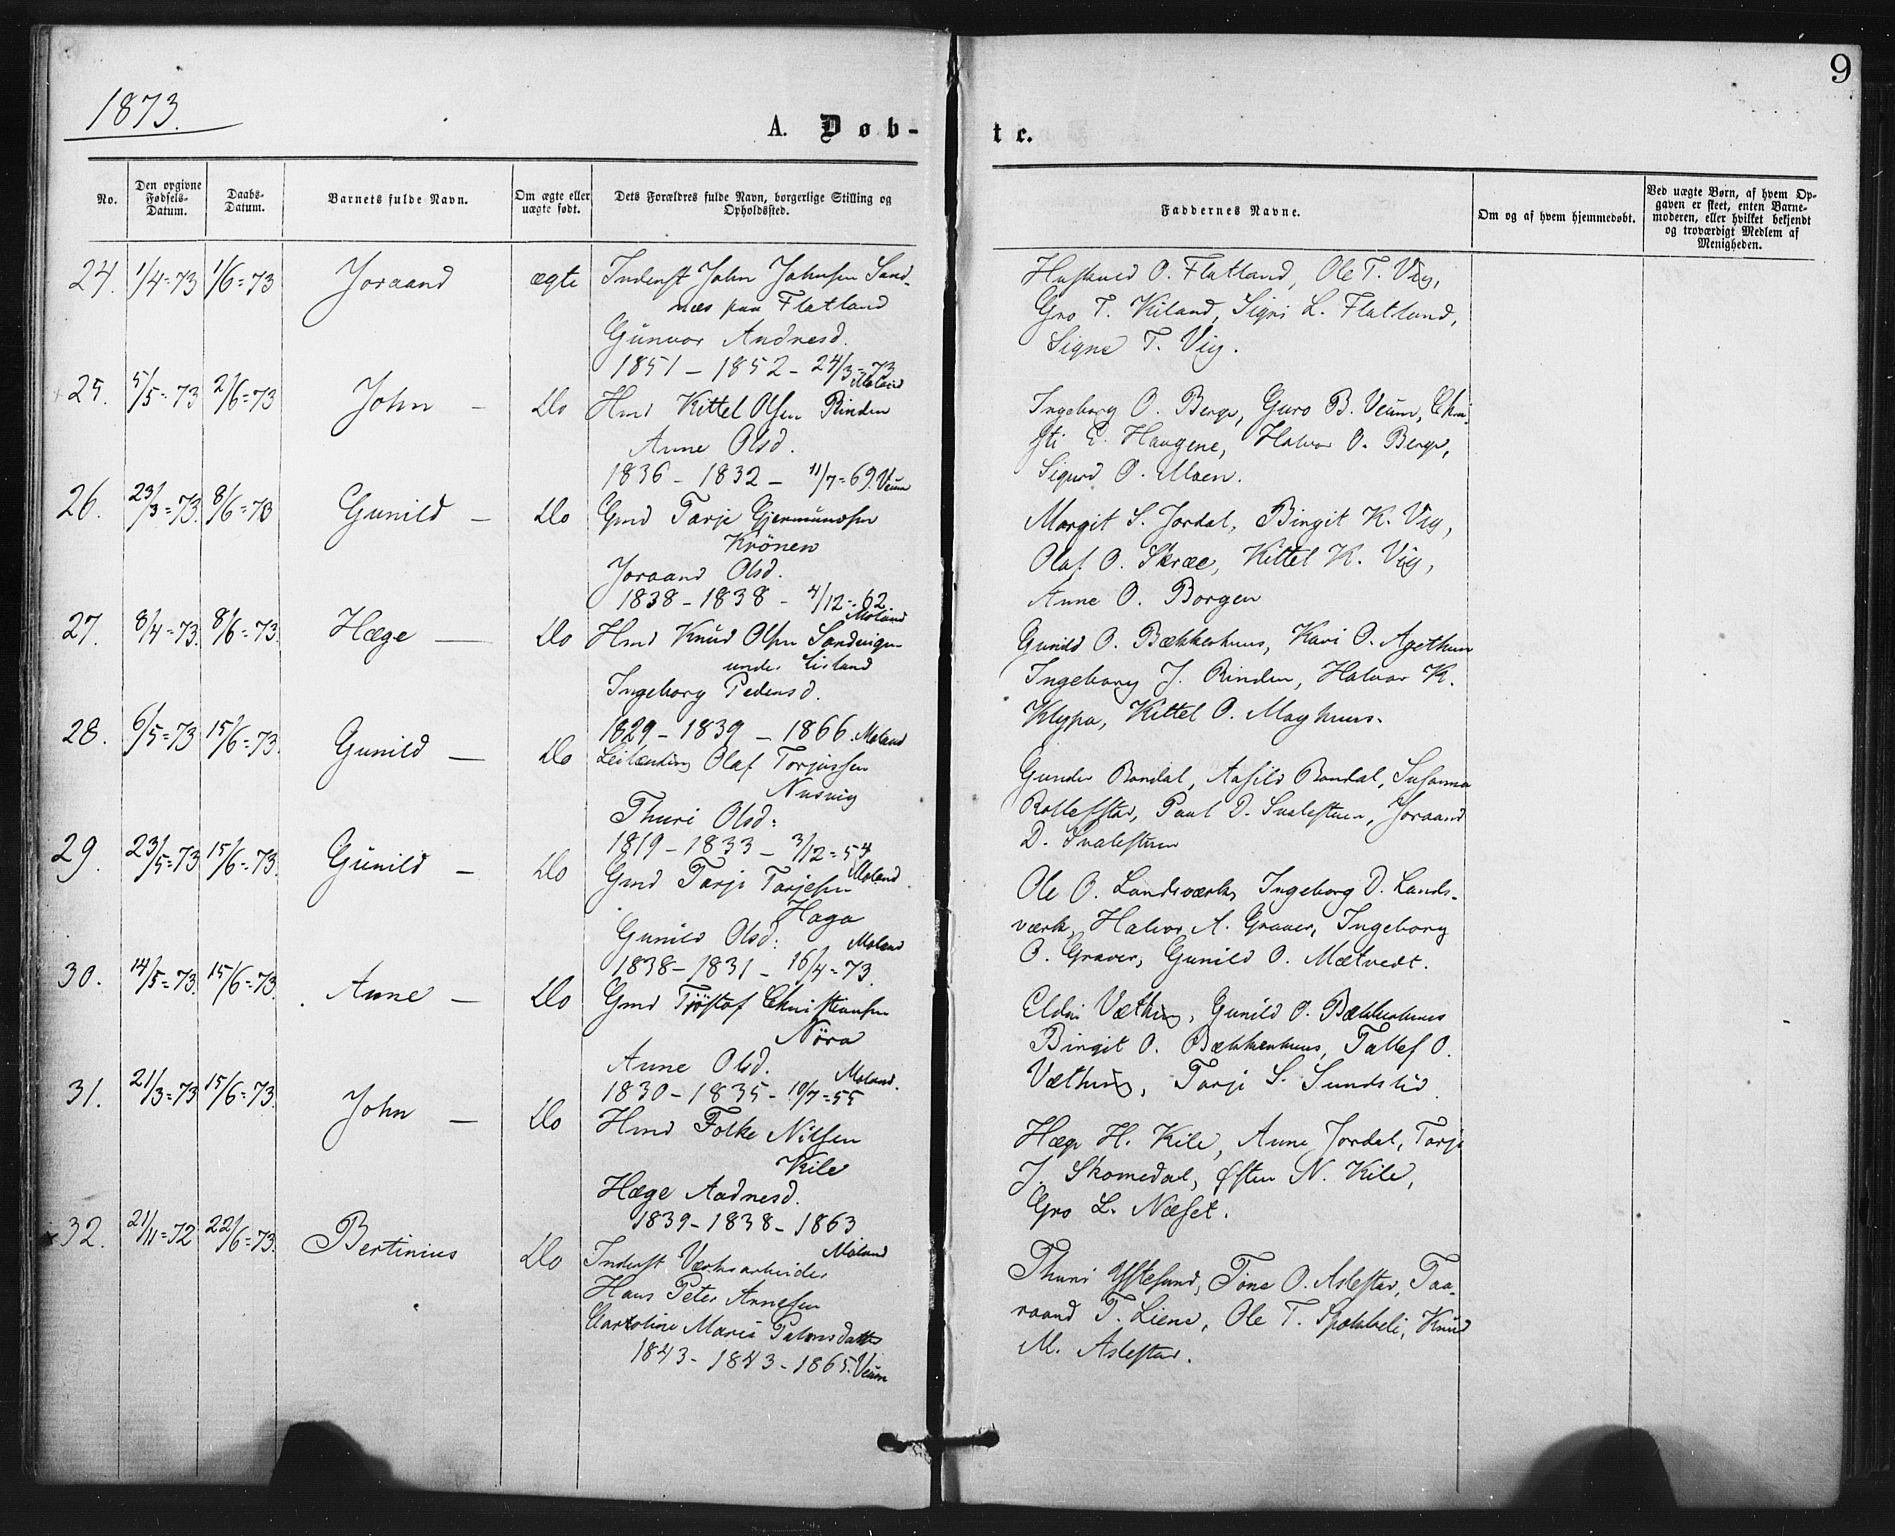 1873.
9
A. Døb-
te.
No.
Den opgivne Fødsels-Datum.
Daabs-Datum.
Barnets fulde Navn.
Om ægte eller uægte født.
Dets Forældres fulde Navn, borgerlige Stilling og Opholdssted.
Faddernes Navne.
Om og af hvem hjemmedøbt.
Ved uægte Børn, af hvem Opgaven er skeet, enten Barnemoderen, eller hvilket bekjendt og troværdigt Medlem af Menigheden.
24. 1/4=73 1/6=73 Joraand ægte Inderst John Johnsen Sand-
næs paa Flatland
Gunvor Andresd.
1851 - 1852 - 24/3=73
Moland
O. Flatland, Ole T. Vig,
Gro T. Kiland, Sigri L. Flatland,
Signe T. Vig.
25. 5/5=73 2/6=73 John - Do Hmd Kittel Olsen Rinden
Anne Olsd.
1836 - 1832 - 11/7=69. Veum
Ingeborg O. Berge, Guro B. Veum, Chri-
sti E. Haugene, Halvor O. Berge,
Sigurd O. Ulven.
26. 23/3=73. 8/6=73 Gunild - Do Gmd Tarje Gjermundsen
Krönen
Joraand Olsd.
1838 - 1838 - 4/12=62
Moland
Margit S. Jordal, Birgit K. Vig,
Olaf O. Skræe, Kittel K. Vig,
Anne O. Borgen
27. 8/4=73. 8/6=73. Hæge - Do Hmd Knud Olsen Sandvigen
under Eisland
Ingeborg Pedersd.
1829 - 1839 - 1866. Moland
Gunild O. Bækkenhuus, Kari O.
Ingeborg J. Rinden, Halvor K.
Klypa, Kittel O. Moghuus.
28. 6/5=73 15/6=73. Gunild - Do Leilænding Olaf Torjussen
Næsvig
Thuri Olsd:
1819 - 1833 - 3/12=54
Moland
Gunder Bondal, Aasild Bondal, Susanna
Rollefstad, Paul D. Svalestuen, Joraand
D. Svalestuen
29. 23/5=73 15/6=73. Gunild - Do Gmd Tarje Tarjesen
Haga
Gunild Olsd:
Moland
1838 - 1831 - 16/4=73.
Ole O. Landsværk, Ingeborg D. Lands-
værk, Halvor A. Graver, Ingeborg
O. Graver, Gunild O. Mætvedt.
30. 14/5=73. 15/6=73. Anne - Do Gmd Tjöstof Christensen
Nöra
Anne Olsd.
Moland.
1830 - 1835 - 10/7=55
Eldri Væthing, Gunild O. Bækkenhuus
Birgit O. Bækkenhuus, Tallef O.
Væthing, Tarje S. Sundslid.
31. 21/3=73 15/6=73. John - Do Hmd Folke Nilsen
Kile
Hæge Aadnesd.
1839 - 1838 - 1863
Moland
Hæge H. Kile, Anne Jordal, Tarje
J. Skomedal, Östen N. Kile,
Gro L. Næset.
32. 21/11=72 22/6=73. Bertinius Do Inderst Værksarbeider
Hans Peter Arnesen
Caroline Maria
1843 - 1843 - 1865. Veum
Thuri Oftesund, Tone O. Aslestad, Taa-
raand T. Liene, Ole T. Spokkeli, Knud
M. Aslestad.